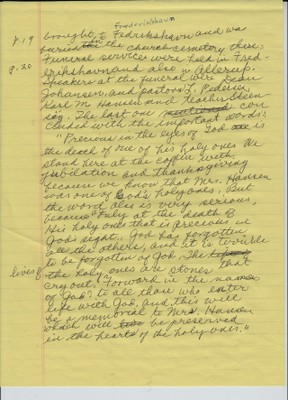 Frederikshavn
p.19 brought to Fedrikshavn and was
buried in the church cemetery there.
p.20 Funeral services were held in Fred-
erikshavn and also in
Speakers at the funeral were Dean
Johansen, and pastors J. Pedersen,
Karl M. Hansen and Teacher
The last one con-
cluded with the important words:
"Precious in the eyes of God is
the death of one of his holy ones. We
stand here at the coffin with
jubilation and thanksgiving
because we know that Mrs. Hansen
was one of God's holy ones. But
the word also is very serious,
because only at the death of
His holy ones that is precious in
God's sight. God has forgotten
all the others, and it is terrible
to be forgotten of God. The
lives of the holy ones are stones that
cry out: Forward in the name
of God! to all those who enter
life with God, and this will
be a memorial to Mrs. Hansen
which will be preserved
in the hearts of the holy ones."